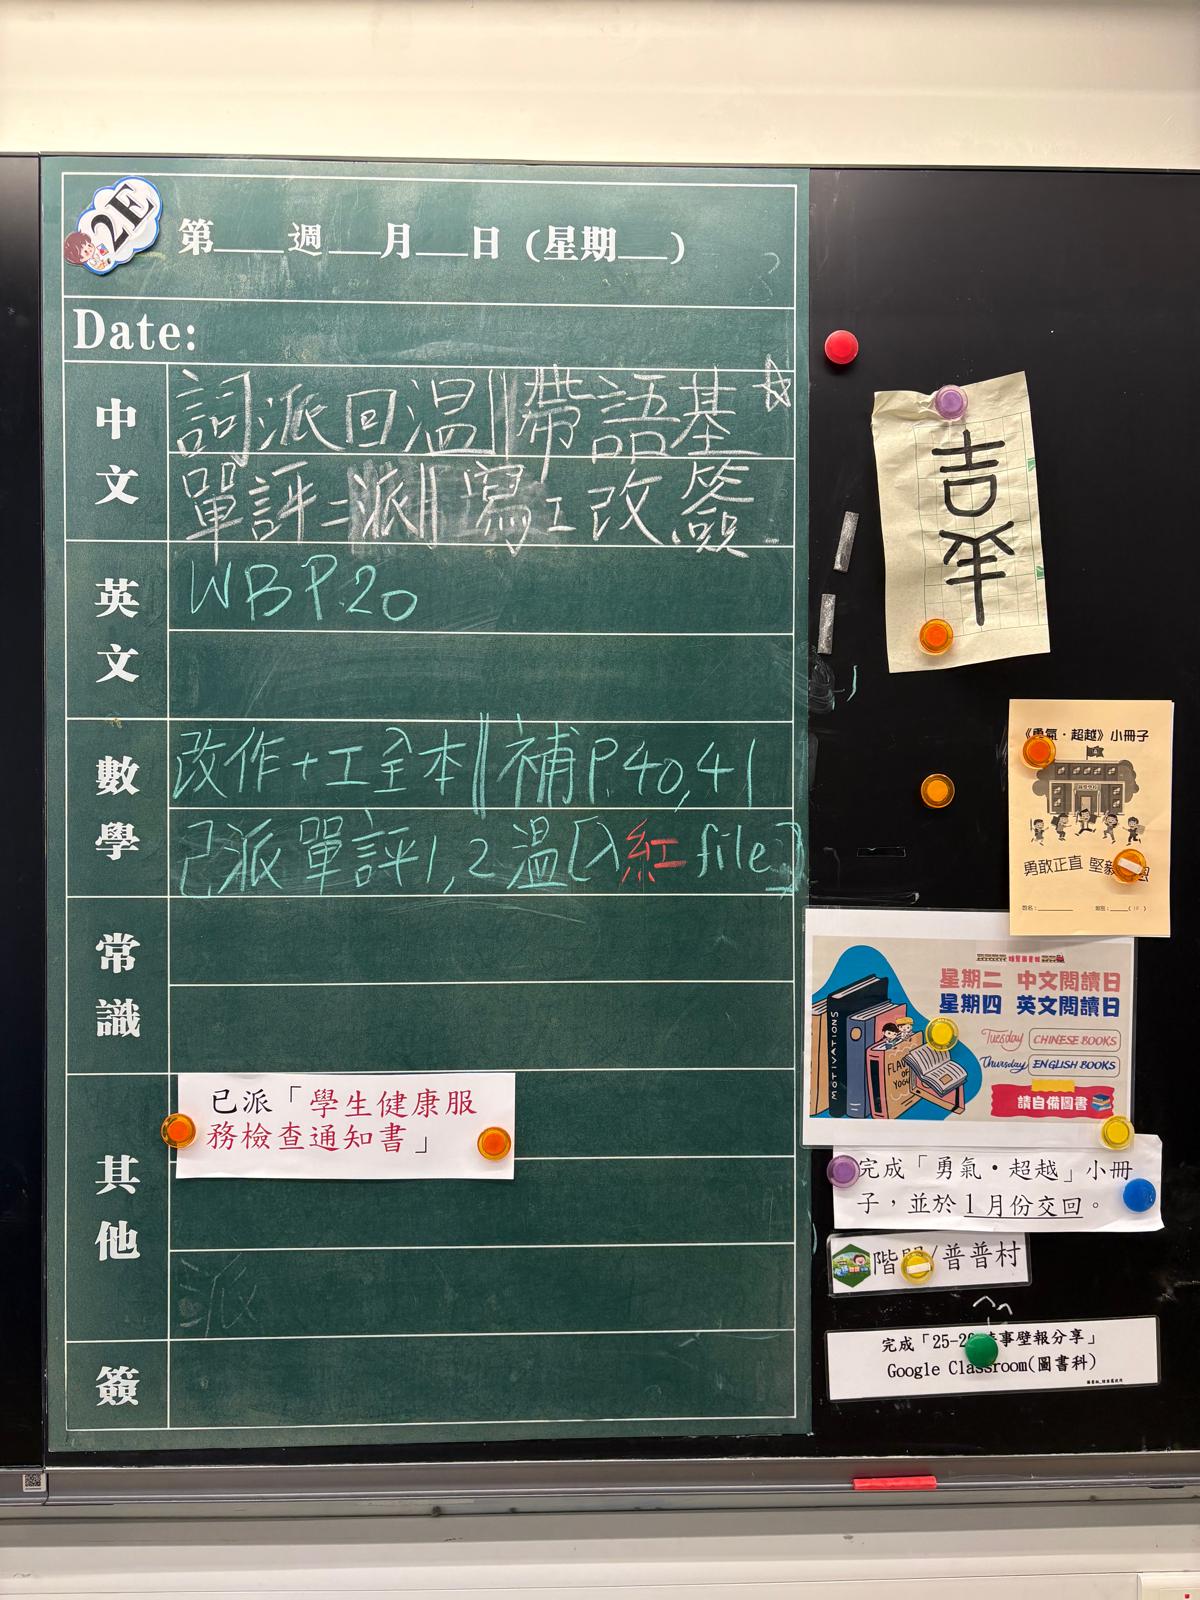 2E
第____週___月___日(星期___)
Date:
中文
詞派回溫||帶語基☆
單評二派||寫工改簽
英文
WB P.20
數學
改作+工全本||補P.40,41
已派單評1,2溫[入紅file]
常識
其他
已派「學生健康服
務檢查通知書」
派
簽
吉羊
《勇氣·超越》小冊子
勇敢正直 堅毅
姓名:
班別:
星期二 中文閱讀日
星期四 英文閱讀日
Tuesday CHINESE BOOKS
Thursday ENGLISH BOOKS
請自備圖書
MOTIVATIONS
完成「勇氣·超越」小冊
子,並於1月份交回。
階/普普村
完成「25-2事壁報分享」
Google Classroom(圖書科)